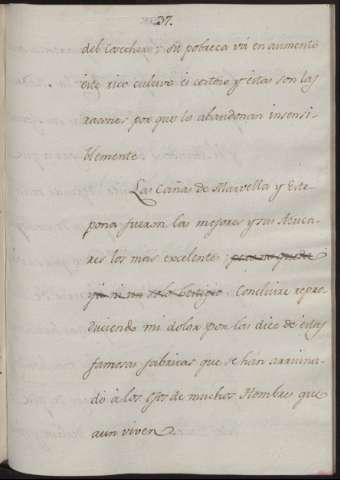 37.
del Cosechero; su pobreza vá en aumento
este rico cultivo és costoso y éstas son las
razones por que lo abandonan insensi-
blemente.
Las Cañas de Marvella y Este-
pona fueron las mejores y sus Azuca-
res los más excelente: pero no queda
ya ni un solo bestigio. Concluiré repro-
duciendo mi dolor por las diez de estas
famosas fabricas que se hán arruina-
do à los ojos de muchos Hombres que
aun viven.